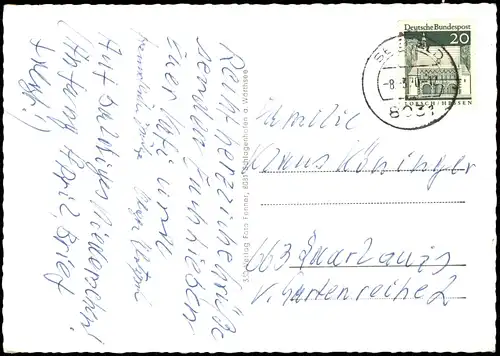 Recht herzliche Grüße
senden Euch lieben
Euer Vati und
Auf baldiges Wiedersehen!
(Anfang April, Brief
folgt!)
S50 Verlag Foto Fenner, 8031 Schlagenhofen a. Wörthsee
Deutsche Bundespost
20
LORSCH / HESSEN
SEE
-8.
8031
Familie
Hans Königer
663 Saarlouis
v. Gartenreihe 2